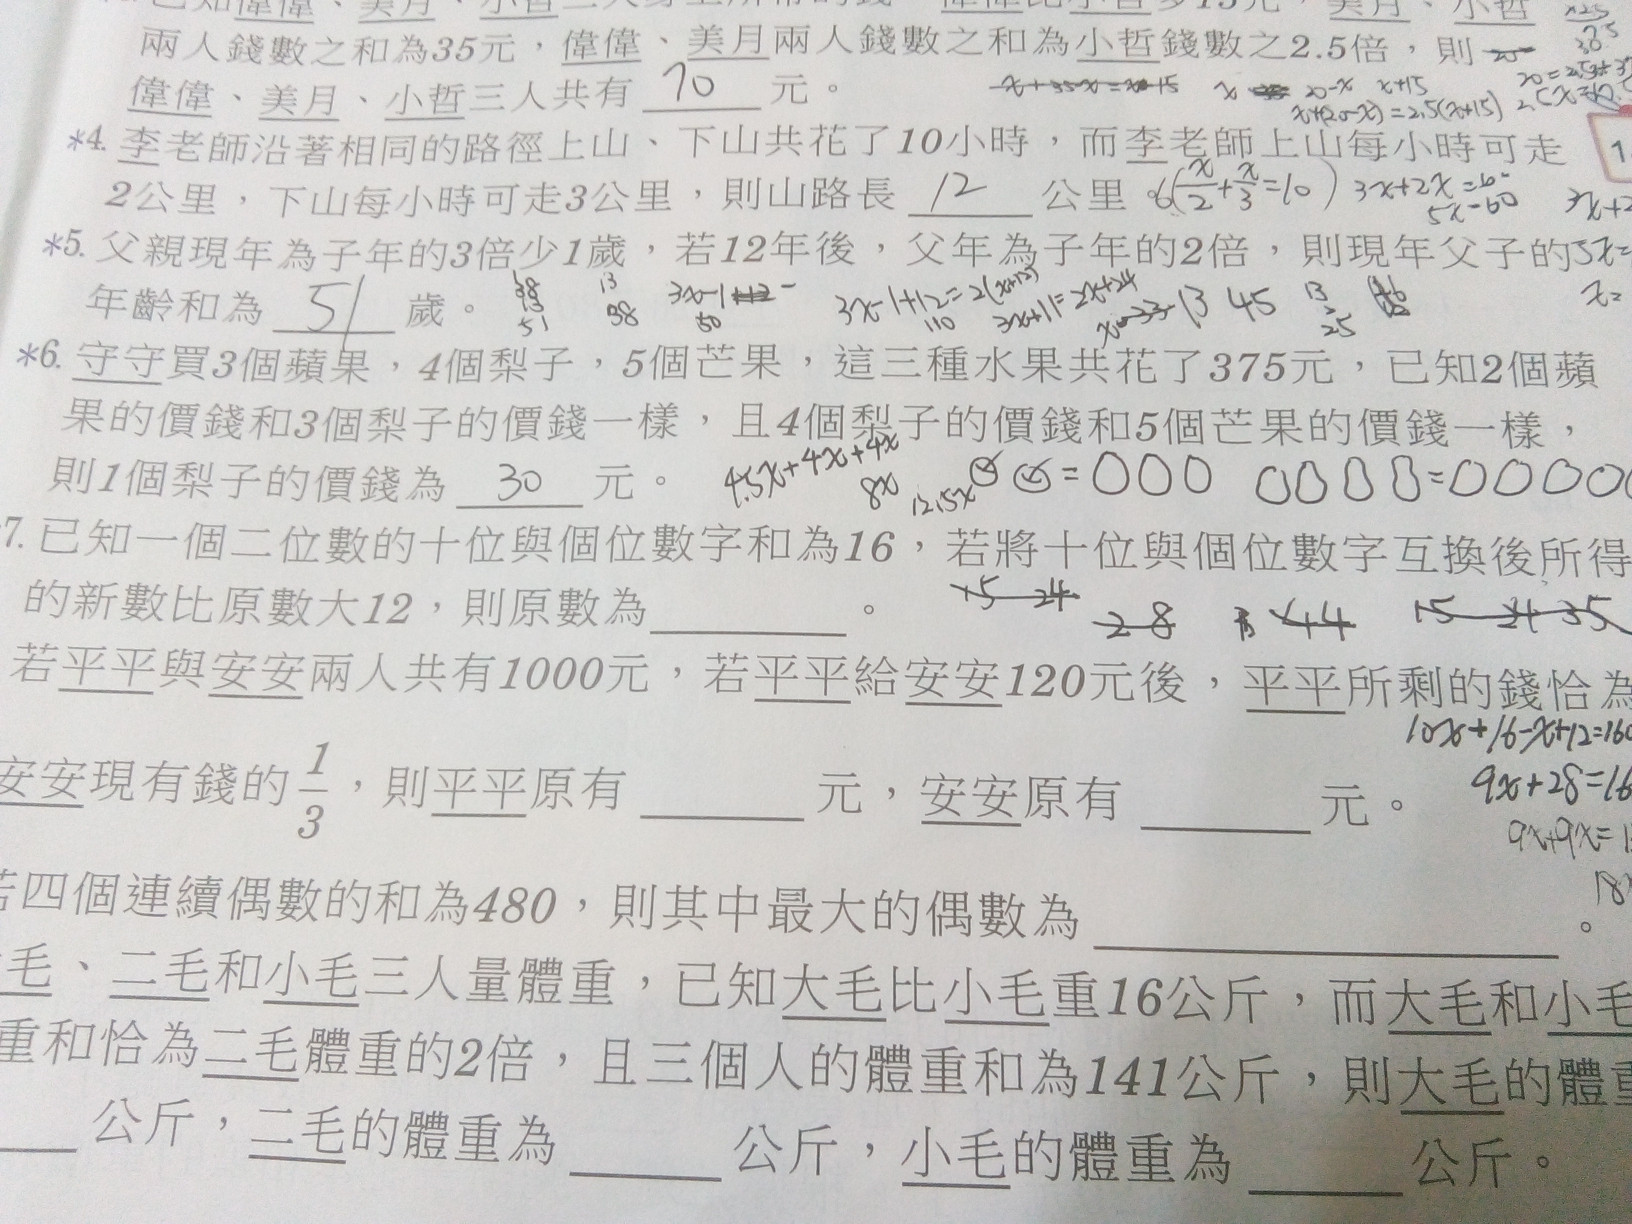 兩人錢數之和為35元，偉偉、美月兩人錢數之和為小哲錢數之2.5倍，則
偉偉、美月、小哲三人共有 70 元。
x 20-x x+15
x+(20-x)=2.5(x+15)
*4. 李老師沿著相同的路徑上山、下山共花了10小時，而李老師上山每小時可走
2公里，下山每小時可走3公里，則山路長 12 公里。
6(x/2+x/3=10) 3x+2x=60
5x=60
*5. 父親現年為子年的3倍少1歲，若12年後，父年為子年的2倍，則現年父子的
年齡和為 51 歲。
38 13 51
13 38
3x-1+12=2(x+12)
3x+11=2x+24
13 45 13 25
*6. 守守買3個蘋果，4個梨子，5個芒果，這三種水果共花了375元，已知2個蘋
果的價錢和3個梨子的價錢一樣，且4個梨子的價錢和5個芒果的價錢一樣，
則1個梨子的價錢為 30 元。
4.5x+4x+4x
8x 12.5x
7. 已知一個二位數的十位與個位數字和為16，若將十位與個位數字互換後所得
的新數比原數大12，則原數為 。
15 24 28 44 15 24 35
若平平與安安兩人共有1000元，若平平給安安120元後，平平所剩的錢恰為
10x+16-x+12=160
安安現有錢的1/3，則平平原有 元，安安原有 元。
9x+28=16
9x+9x=1
18
若四個連續偶數的和為480，則其中最大的偶數為 。
毛、二毛和小毛三人量體重，已知大毛比小毛重16公斤，而大毛和小毛
重和恰為二毛體重的2倍，且三個人的體重和為141公斤，則大毛的體重
公斤，二毛的體重為 公斤，小毛的體重為 公斤。